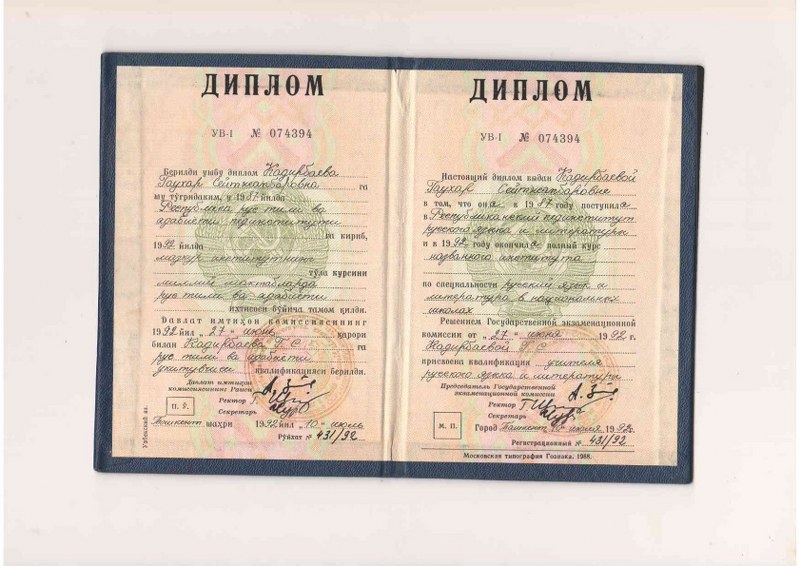 ДИПЛОМ
УВ-I № 074394
Берилди ушбу диплом Кадирбаева
Гаухар Сейтжапбаровна га
шу тўғридаким, у 1987 йилда
Республика рус тили ва
адабиёти пединститути
га кириб,
1992 йилда
мазкур институтнинг
тўла курсини
миллий мактабларда
рус тили ва адабиёти
ихтисоси бўйича тамом қилди.
Давлат имтиҳон комиссиясининг
1992 йил „27" июнь қарори
билан Кадирбаева Г.С. га
рус тили ва адабиёти
ўқитувчиси квалификацияси берилди.
Давлат имтиҳон
комиссиясининг Раиси
Ректор
Секретарь
П. Ў.
Тошкент шаҳри 1992 йил „10" июль
Рўйхат № 431/92
Узбекский яз.
ДИПЛОМ
УВ-I № 074394
Настоящий диплом выдан Кадирбаевой
Гаухар Сейтжапбаровне
в том, что она в 1987 году поступила
в Республиканский пединститут
русского языка и литературы
и в 1992 году окончила полный курс
названного института
по специальности русский язык и
литература в национальных
школах
Решением Государственной экзаменационной
комиссии от „27" июня 1992 г.
Кадирбаевой Г.С.
присвоена квалификация учителя
русского языка и литературы
Председатель Государственной
экзаменационной комиссии
Ректор
Секретарь
М. П.
Город Ташкент 10 июля 1992 г.
Регистрационный № 431/92
Московская типография Гознака. 1988.